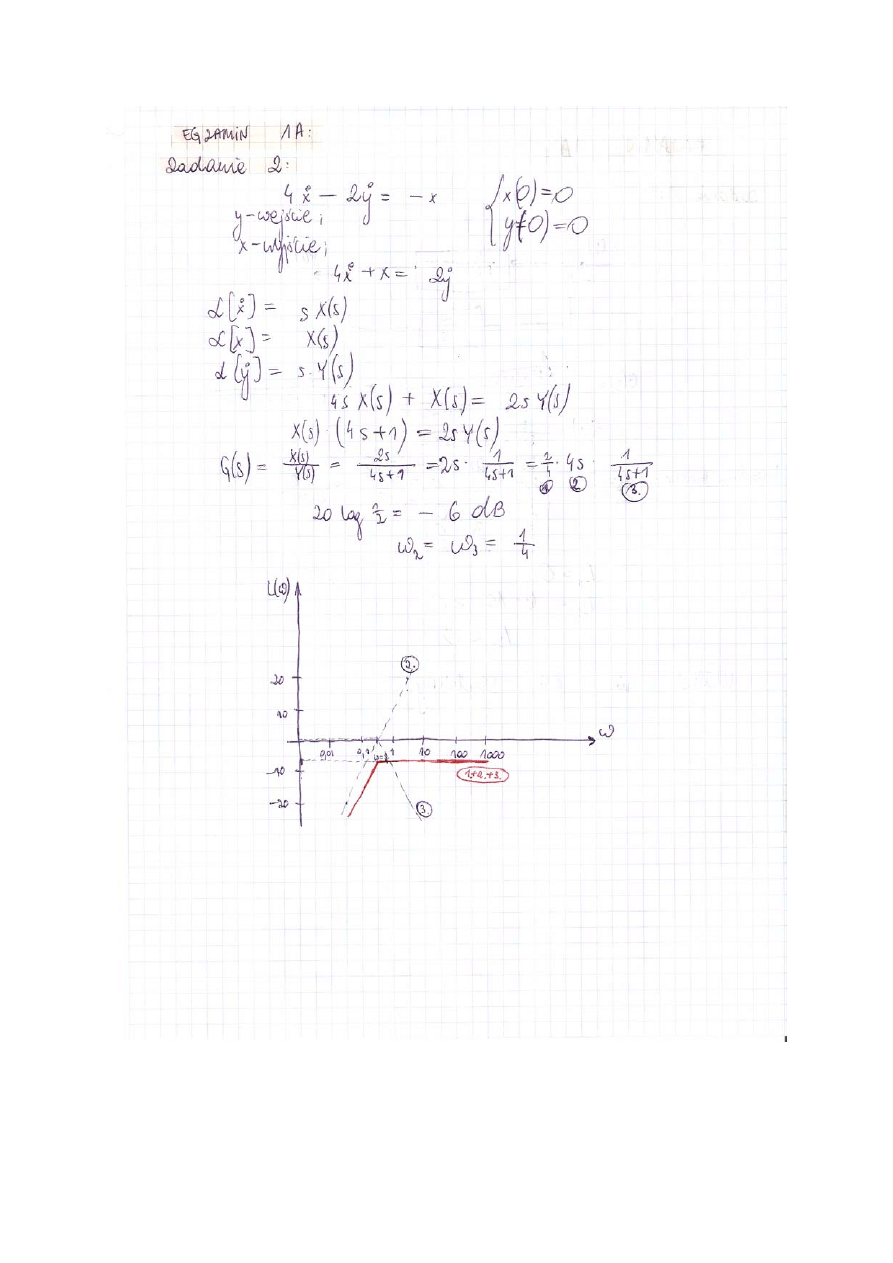 EGZAMIN 1A:
Zadanie 2:
4ẋ − 2ẏ = −x { x(0)=0
y-wejście; { y(0)=0
x-wyjście;
4ẋ + x = 2ẏ
ℒ[ẋ] = s X(s)
ℒ[x] = X(s)
ℒ[ẏ] = s·Y(s)
4s X(s) + X(s) = 2s Y(s)
X(s)·(4s+1) = 2s Y(s)
G(s) = X(s)/Y(s) = 2s/(4s+1) = 2s · 1/(4s+1) = 1/2 · 4s · 1/(4s+1)
① ② ③.
20 log 1/2 = −6 dB
ω₂ = ω₃ = 1/4
L(ω)
②.
20
10
ω
0,01 0,1 1 10 100 1000
−10
1+2.+3.
−20
③